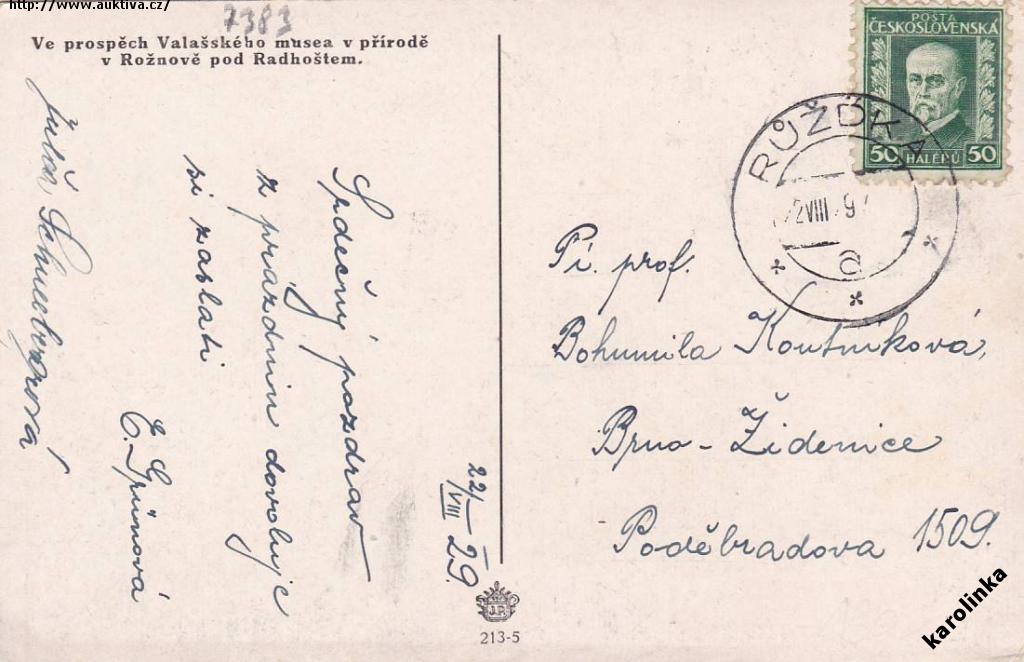 http://www.auktiva.cz/
7383
Ve prospěch Valašského musea v přírodě
v Rožnově pod Radhoštem.
Srdečný pozdrav
z prázdnin dovoluje
si zaslati
E. Grünová
22/VIII 29.
J.P.
213-5
POŠTA
ČESKOSLOVENSKÁ
50 HALÉŘŮ 50
RŮŽĎKA
22 VIII 29
a
Pí. prof.
Bohumila Koutníková,
Brno-Židenice
Poděbradova 1509.
karolinka